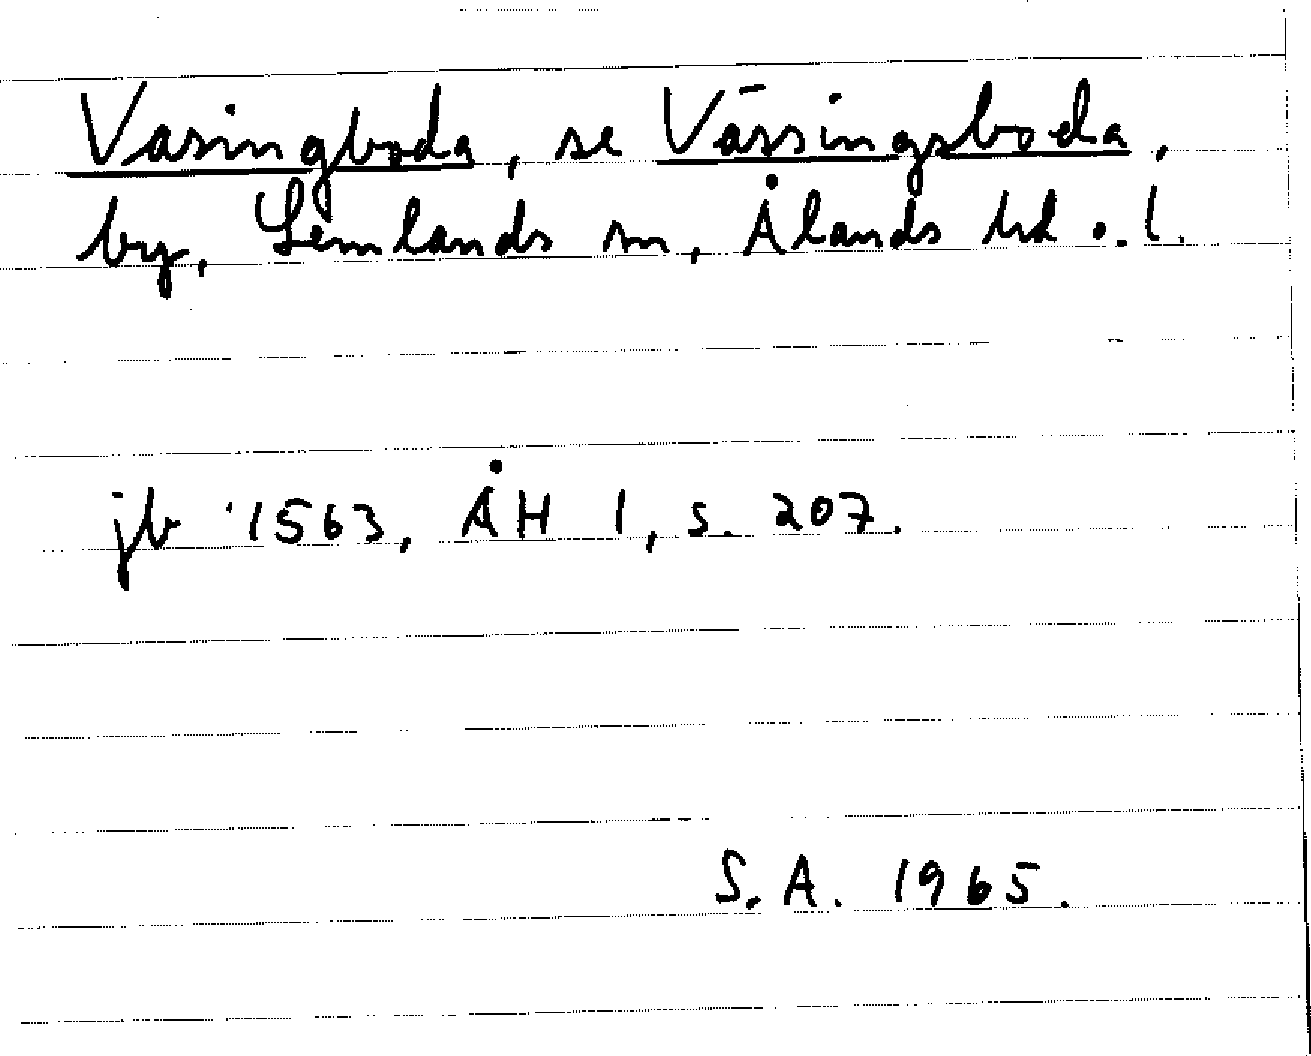 Vasingboda, se Vässingsboda,
by, Lemlands sn, Ålands hd o. l.
jb 1563, ÅH 1, s. 207.
S.A. 1965.